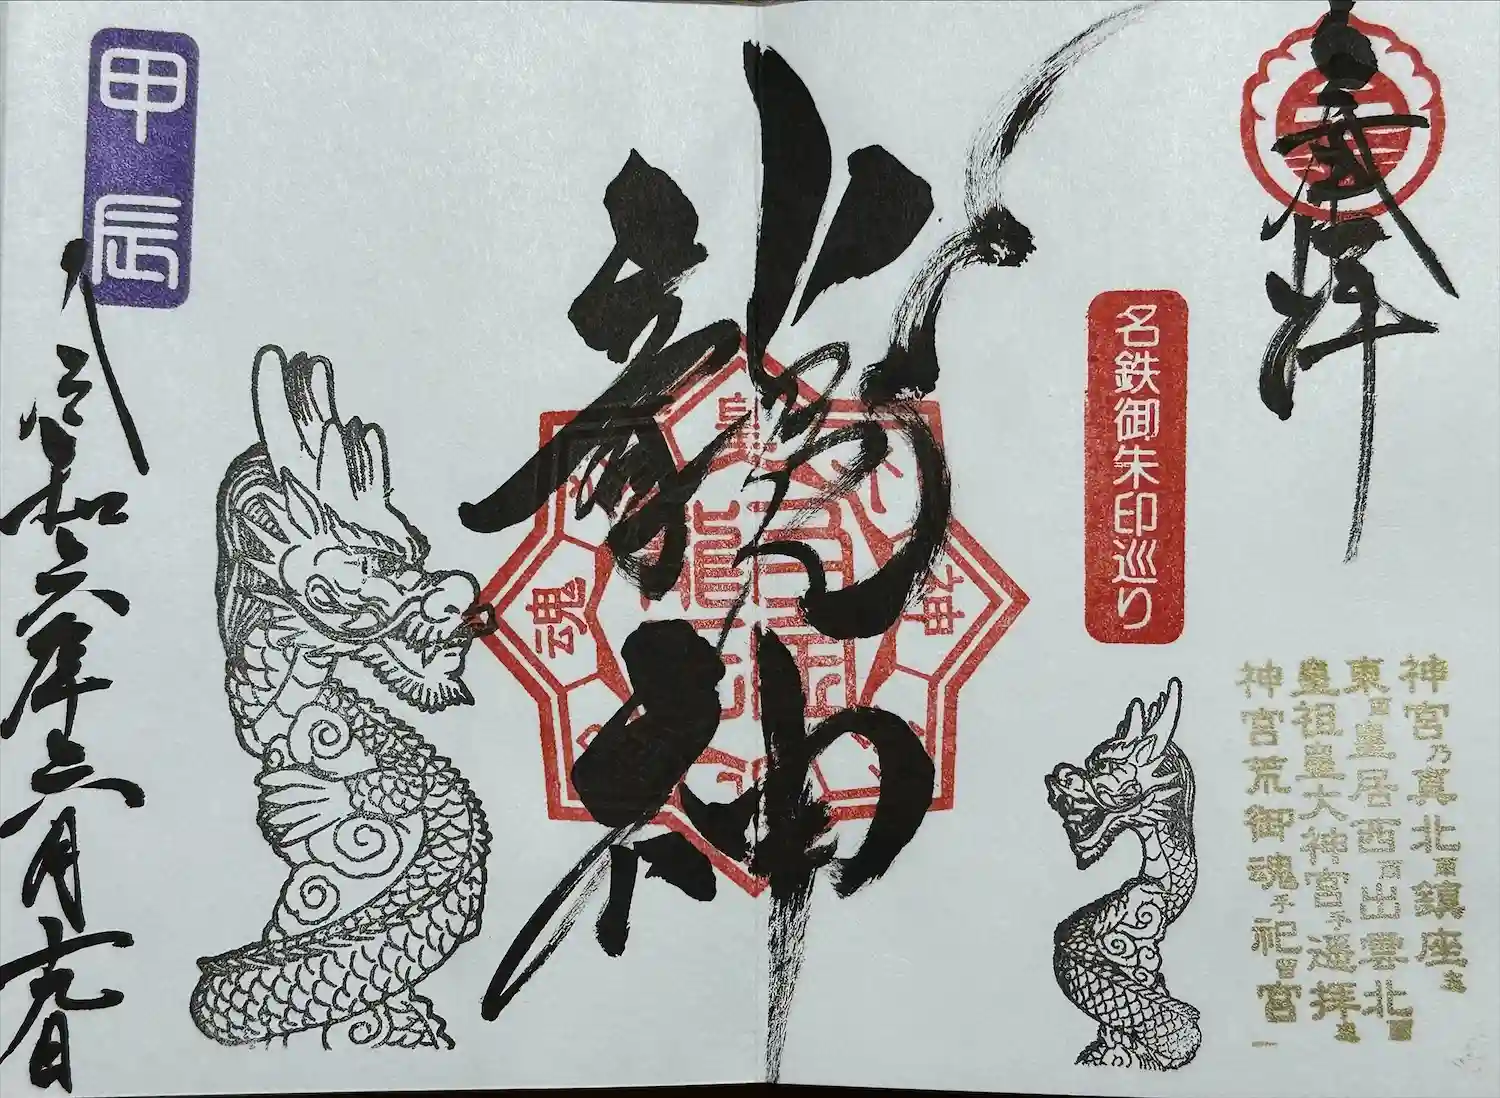 奉拝
名鉄御朱印巡り
神宮乃真北爾鎮座
東爾皇居西爾出雲北爾
皇祖皇大神宮乎遥拝
神宮荒御魂乎祀留宮
龍神
皇
神
魂
甲辰
令和六年六月十九日